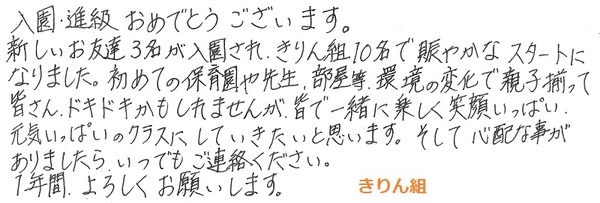 入園・進級 おめでとうございます。
新しいお友達3名が入園され、きりん組10名で賑やかなスタートに
なりました。初めての保育園や先生、部屋等、環境の変化で親子揃って
皆さん、ドキドキかもしれませんが、皆で一緒に楽しく笑顔いっぱい、
元気いっぱいのクラスにしていきたいと思います。そして心配な事が
ありましたら、いつでもご連絡ください。
1年間、よろしくお願いします。 きりん組